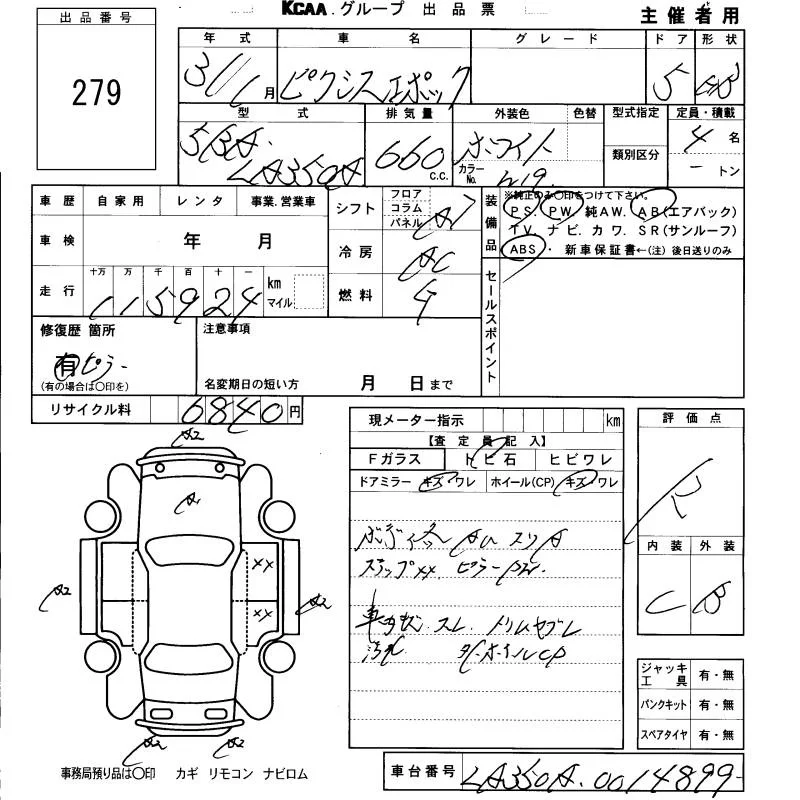 KCAA.グループ 出品票
主催者用
出品番号
279
年式 車名 グレード ドア 形状
31 1月 ピクシスエポック 5
型式 排気量 外装色 色替 型式指定 定員・積載
5BA-LA350A 660 C.C. ホワイト 類別区分 4名
カラーNo. W19 ートン
車歴 自家用 レンタ 事業.営業車
シフト フロア コラム パネル AT
装備品 ※純正のみ〇印をつけて下さい。
PS. PW. 純AW. AB(エアバック)
TV. ナビ. カワ. SR(サンルーフ)
ABS・ 新車保証書←(注) 後日送りのみ
車検 年 月
冷房 AC
走行 十万 万 千 百 十 一 km マイル
115924
燃料 G
セールスポイント
修復歴 箇所 注意事項
有 ピラー
(有の場合は〇印を)
名変期日の短い方 月 日まで
リサイクル料 6840円
現メーター指示 km
【査定員記入】
Fガラス トビ石 ヒビワレ
ドアミラー キズ・ワレ ホイール(CP) キズ・ワレ
評価点
R
内装 外装
C B
ステップXX ピラーPW.
スレ トリムヤブレ
A2
A1
XX
A2 XX A2
A2 A2
ジャッキ工具 有・無
パンクキット 有・無
スペアタイヤ 有・無
事務局預り品は〇印 カギ リモコン ナビロム
車台番号 LA350A-0014899-